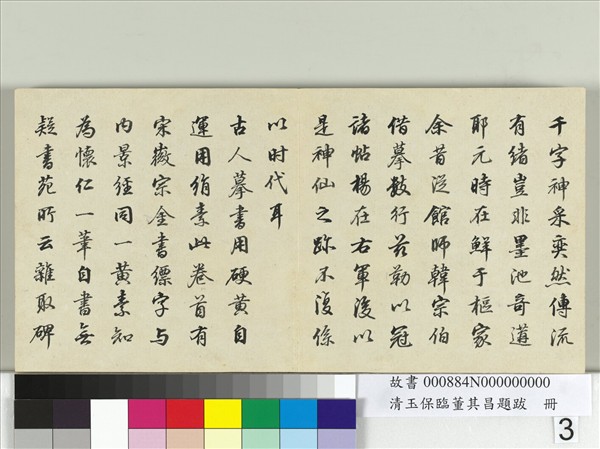 千字神采奕然傳流
有緒豈非墨池奇遘
耶元時在鮮于樞家
余昔從館師韓宗伯
借摹數行茲勒以冠
諸帖楊在右軍後以
是神仙之跡不復係
以时代耳
古人摹書用硬黃自
運用絹素此卷首有
宋徽宗金書縹字与
内景經同一黃素知
為懷仁一筆自書無
疑書苑所云雜取碑
故書 000884N000000000
清玉保臨董其昌題跋 冊
3